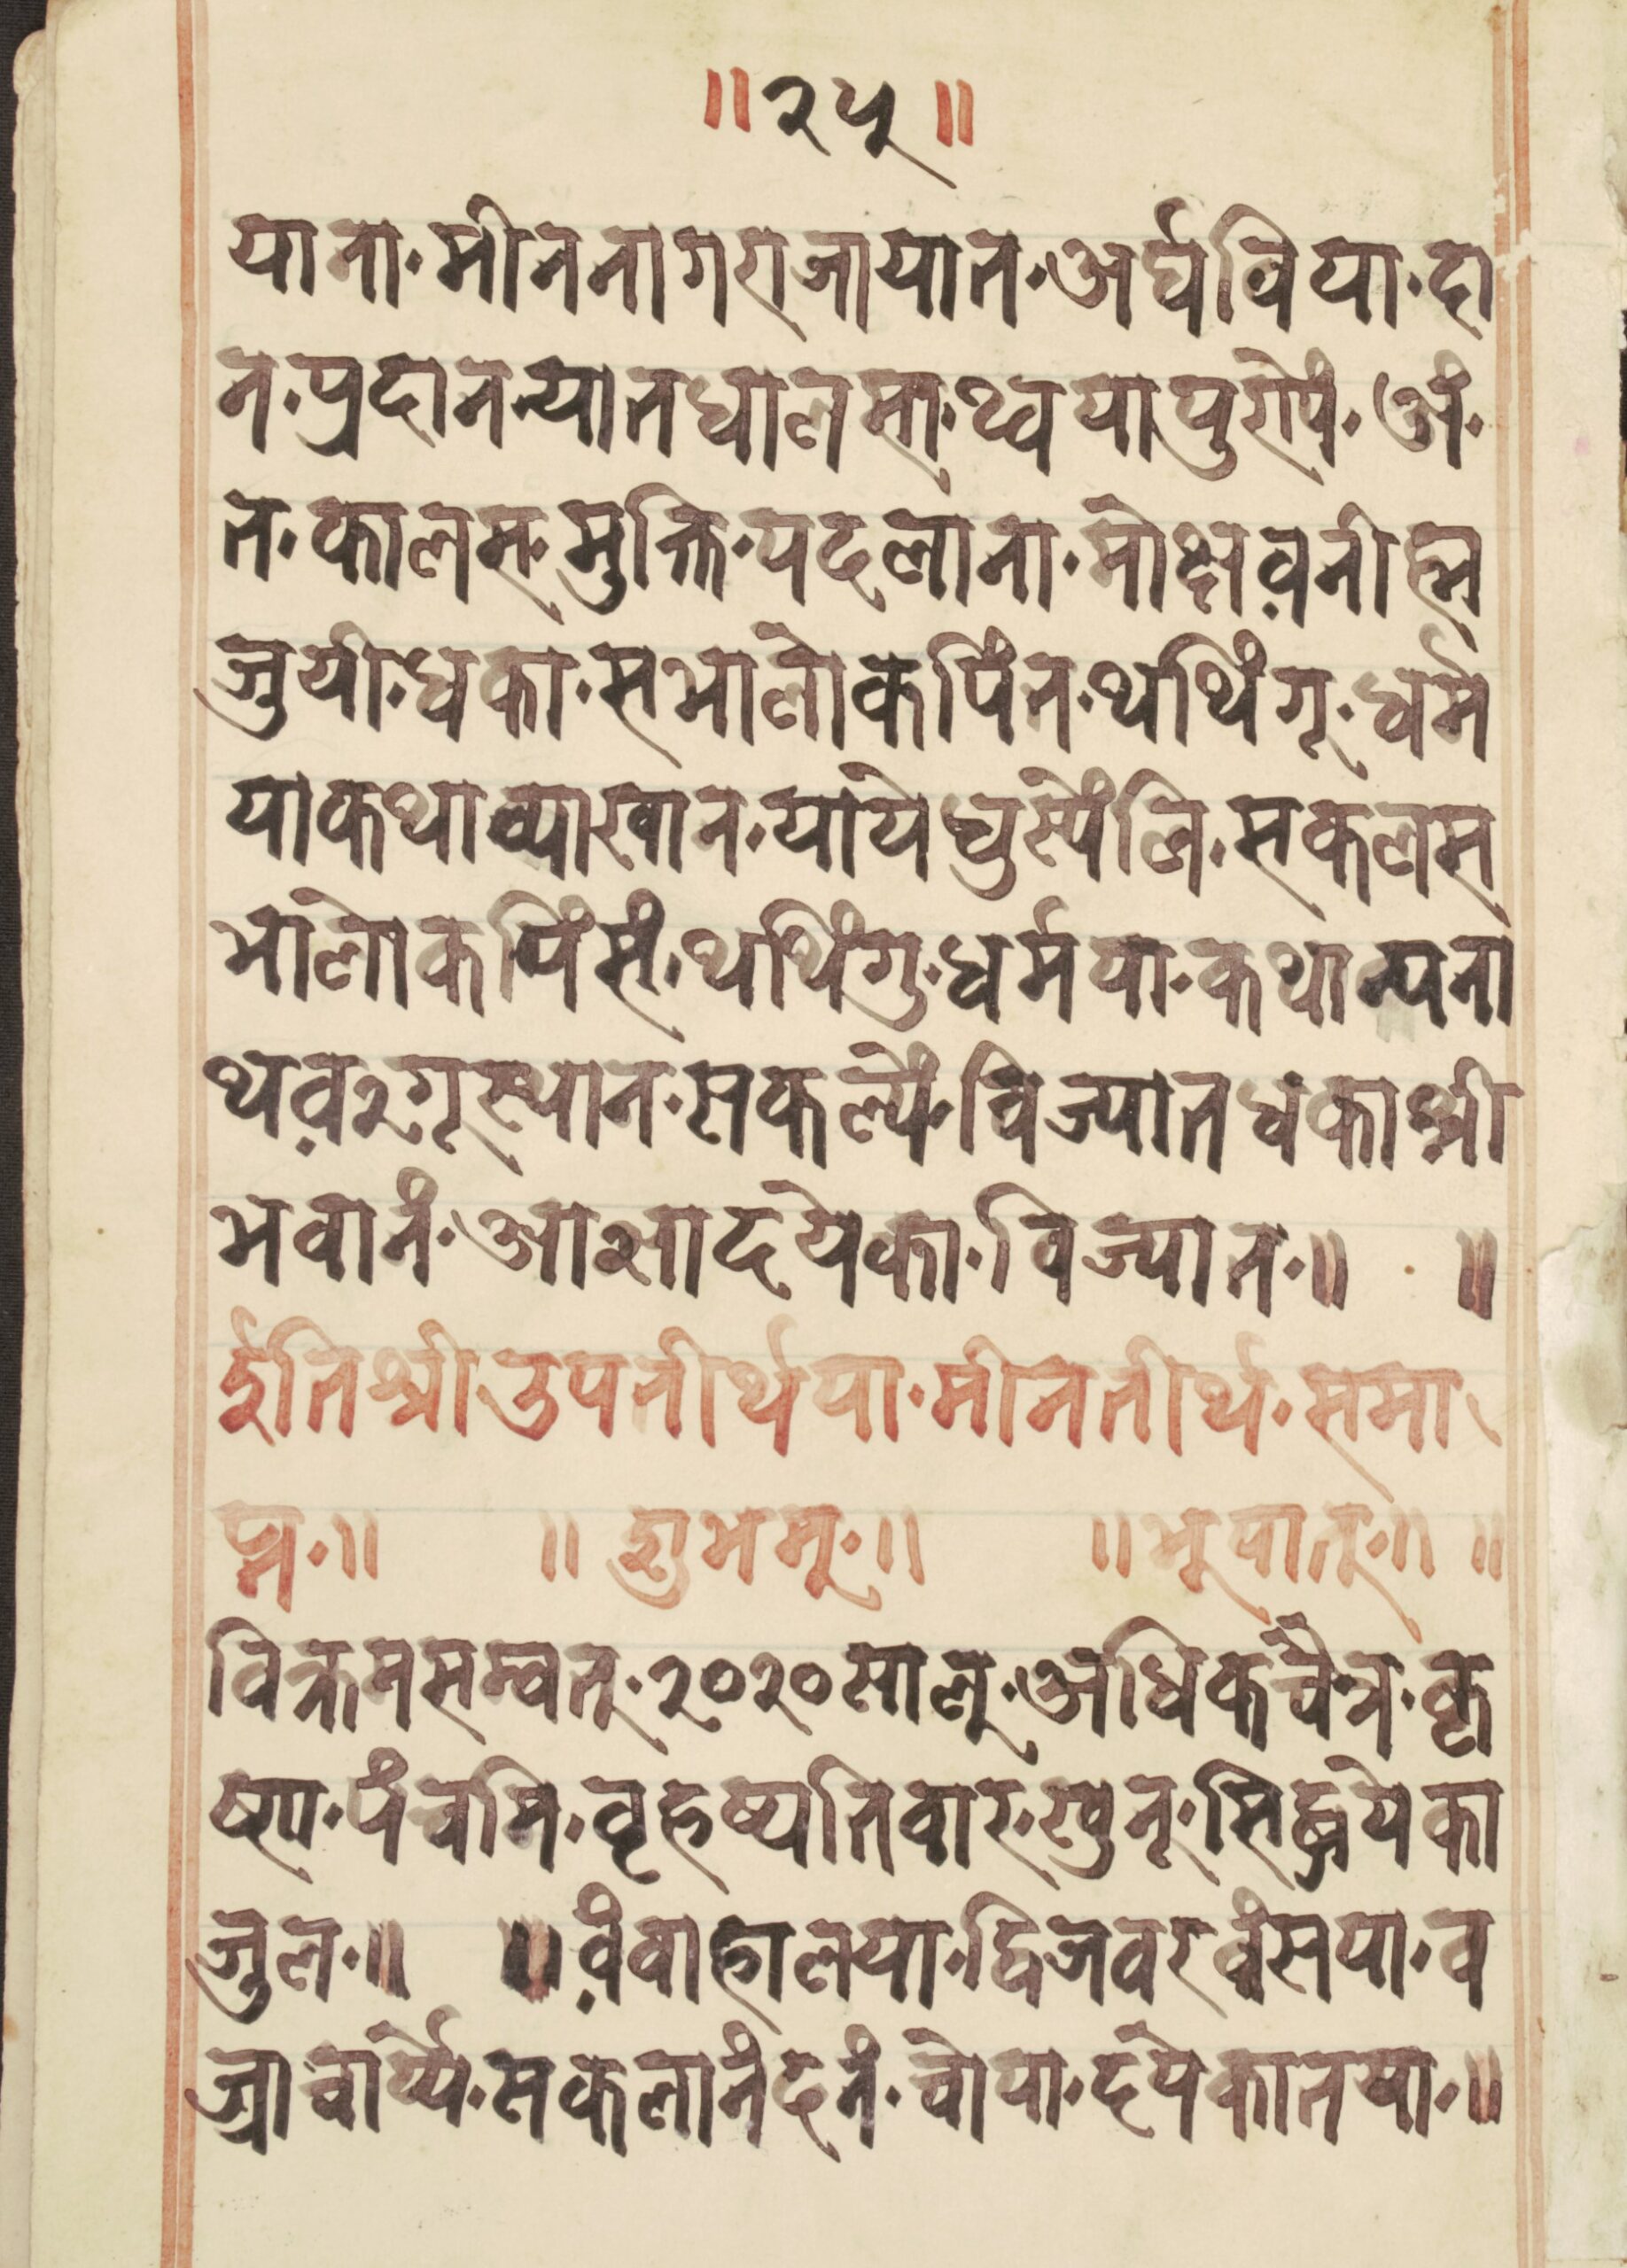 ॥२५॥
याना·मीननागराजायात·अर्घविया·दा
न·प्रदानन्यातधालसा·थ्वयापुरोपं·अं·
त·कालस·मुक्ति·पदलाना·मोक्षव़नीह्म
जुयी·धका·सभालोकपिंन·थथिंगृ·धर्म
याकथाव्याखान·यायेधुस्येंलि·सकलस
भालोकपिंसं·थथिंगु·धर्मया·कथान्यना
थव़२गृस्थान·सकल्यें·विज्यातधंकाश्री
भवानं·आशादयेका·विज्यात·॥ ॥
ईतिश्रीउपतीर्थया·मीनतीर्थ·समा
प्त·॥ ॥ शुभम्·॥ ॥भूयात्·॥ ॥
विक्रमसम्वत्·२०२०साल्·अधिकचैत्र·कृ
ष्ण·पंचमि·वृहष्यतिवार·खुनृ·सिद्धयेका
जुल·॥ ॥व़ंवाहालया·द्विजवरवंसया·व
ज्राचार्य्ये·सकलानंदनं·चोया·दयेकातया·॥